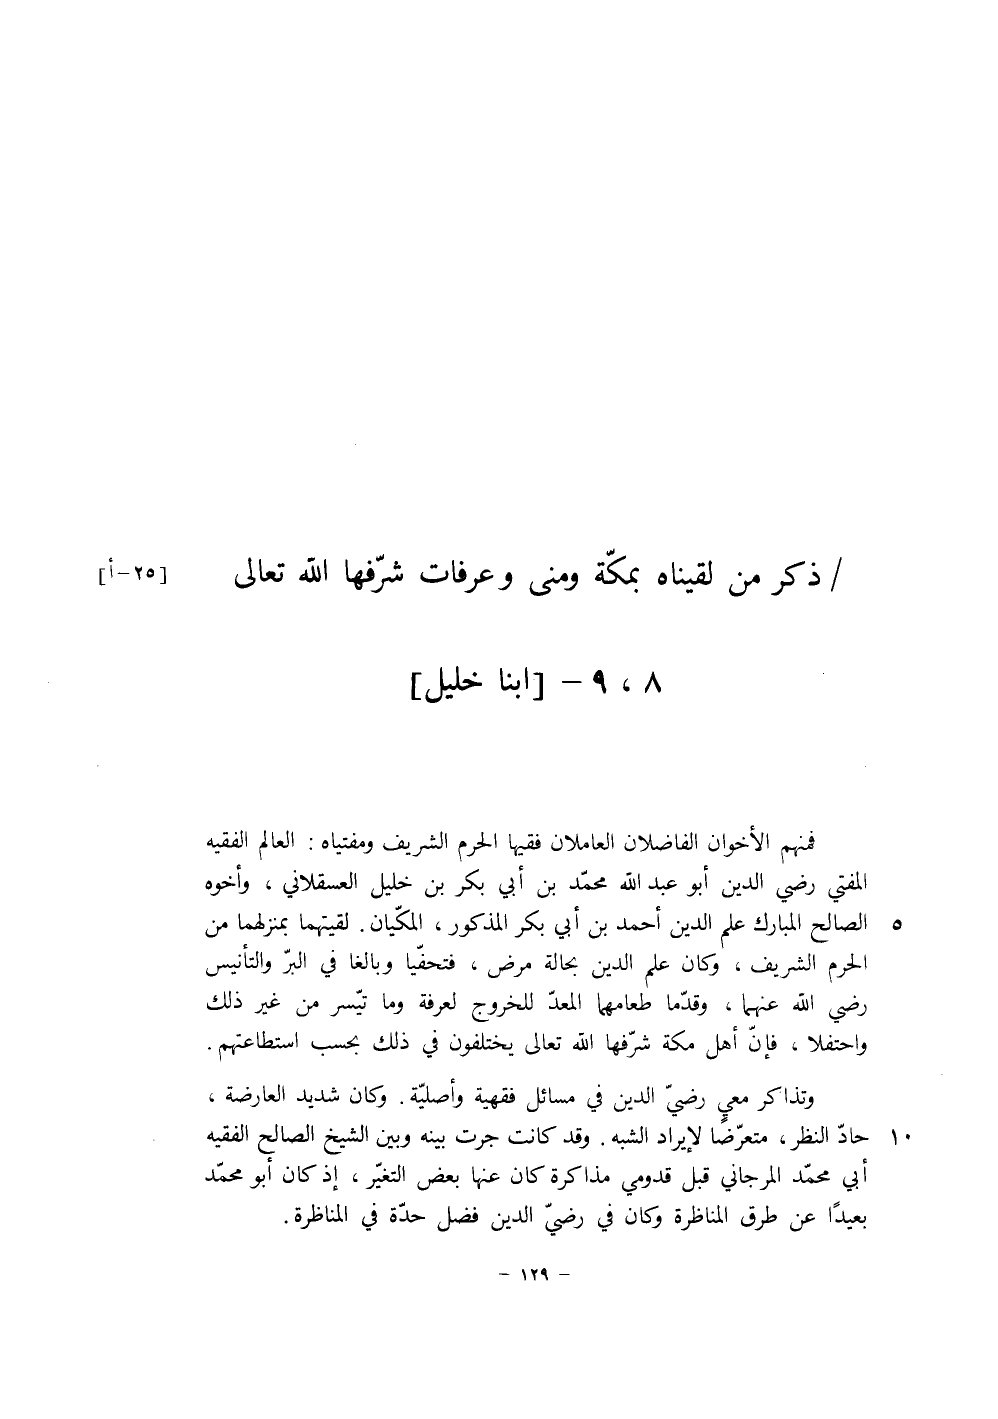 / ذكر من لقيناه بمكّة ومنى وعرفات شرّفها الله تعالى [٢٥-أ]
٨ ، ٩ - [ابنا خليل]
فمنهم الأخوان الفاضلان العاملان فقيها الحرم الشريف ومفتياه : العالم الفقيه
المفتي رضي الدين أبو عبد الله محمّد بن أبي بكر بن خليل العسقلاني ، وأخوه
٥ الصالح المبارك علم الدين أحمد بن أبي بكر المذكور ، المكّيان . لقيتهما بمنزلهما من
الحرم الشريف ، وكان علم الدين بحالة مرض ، فتحفّيا وبالغا في البرّ والتأنيس
رضي الله عنهما ، وقدّما طعامهما المعدّ للخروج لعرفة وما تيّسر من غير ذلك
واحتفلا ، فإنّ أهل مكة شرّفها الله تعالى يختلفون في ذلك بحسب استطاعتهم .
وتذاكر معي رضيّ الدين في مسائل فقهية وأصليّة . وكان شديد العارضة ،
١٠ حادّ النظر ، متعرّضًا لإيراد الشبه . وقد كانت جرت بينه وبين الشيخ الصالح الفقيه
أبي محمّد المرجاني قبل قدومي مذاكرة كان عنها بعض التغيّر ، إذ كان أبو محمّد
بعيدًا عن طرق المناظرة وكان في رضيّ الدين فضل حدّة في المناظرة .
- ١٢٩ -